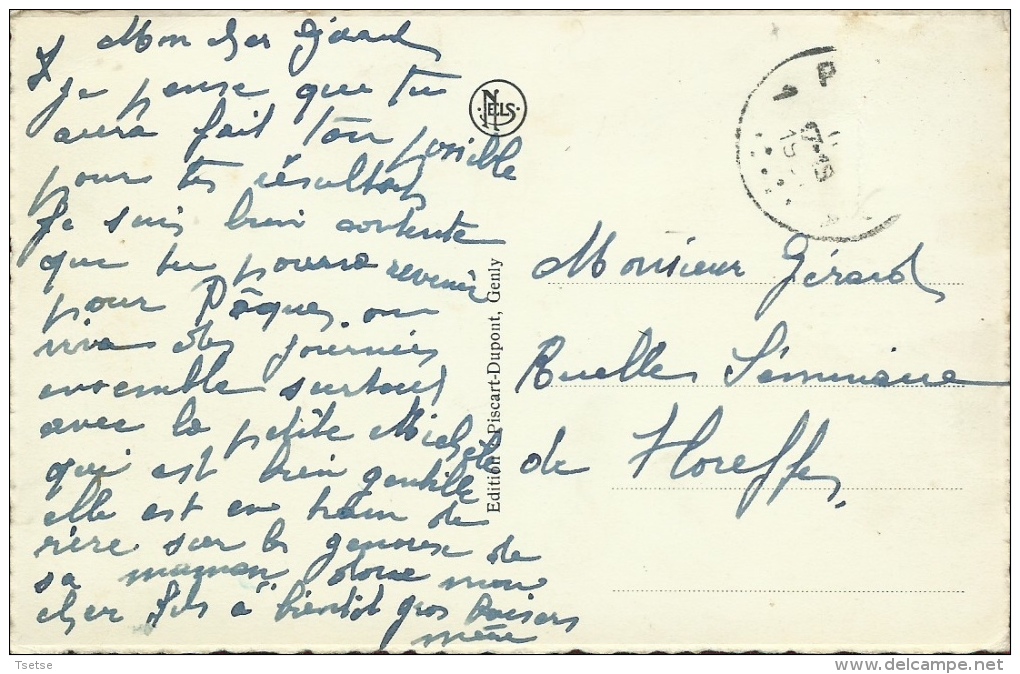 Mon cher Gérard
Je pense que tu
aura fait ton possible
pour tes résultats
Je suis bien contente
que tu pourra revenir
pour Pâques, on
viva des journées
ensemble surtout
avec la petite Michèle
qui est bien gentille
elle est en train de
rire sur les genoux de
sa maman donc mon
cher fils à bientôt gros baisers
mère
NELS
Edition Piscart-Dupont, Genly
P
17-18
19
Monsieur Gérard
Ruelle Séminaire
de Floreffe,
Tsetse
delcampe.net